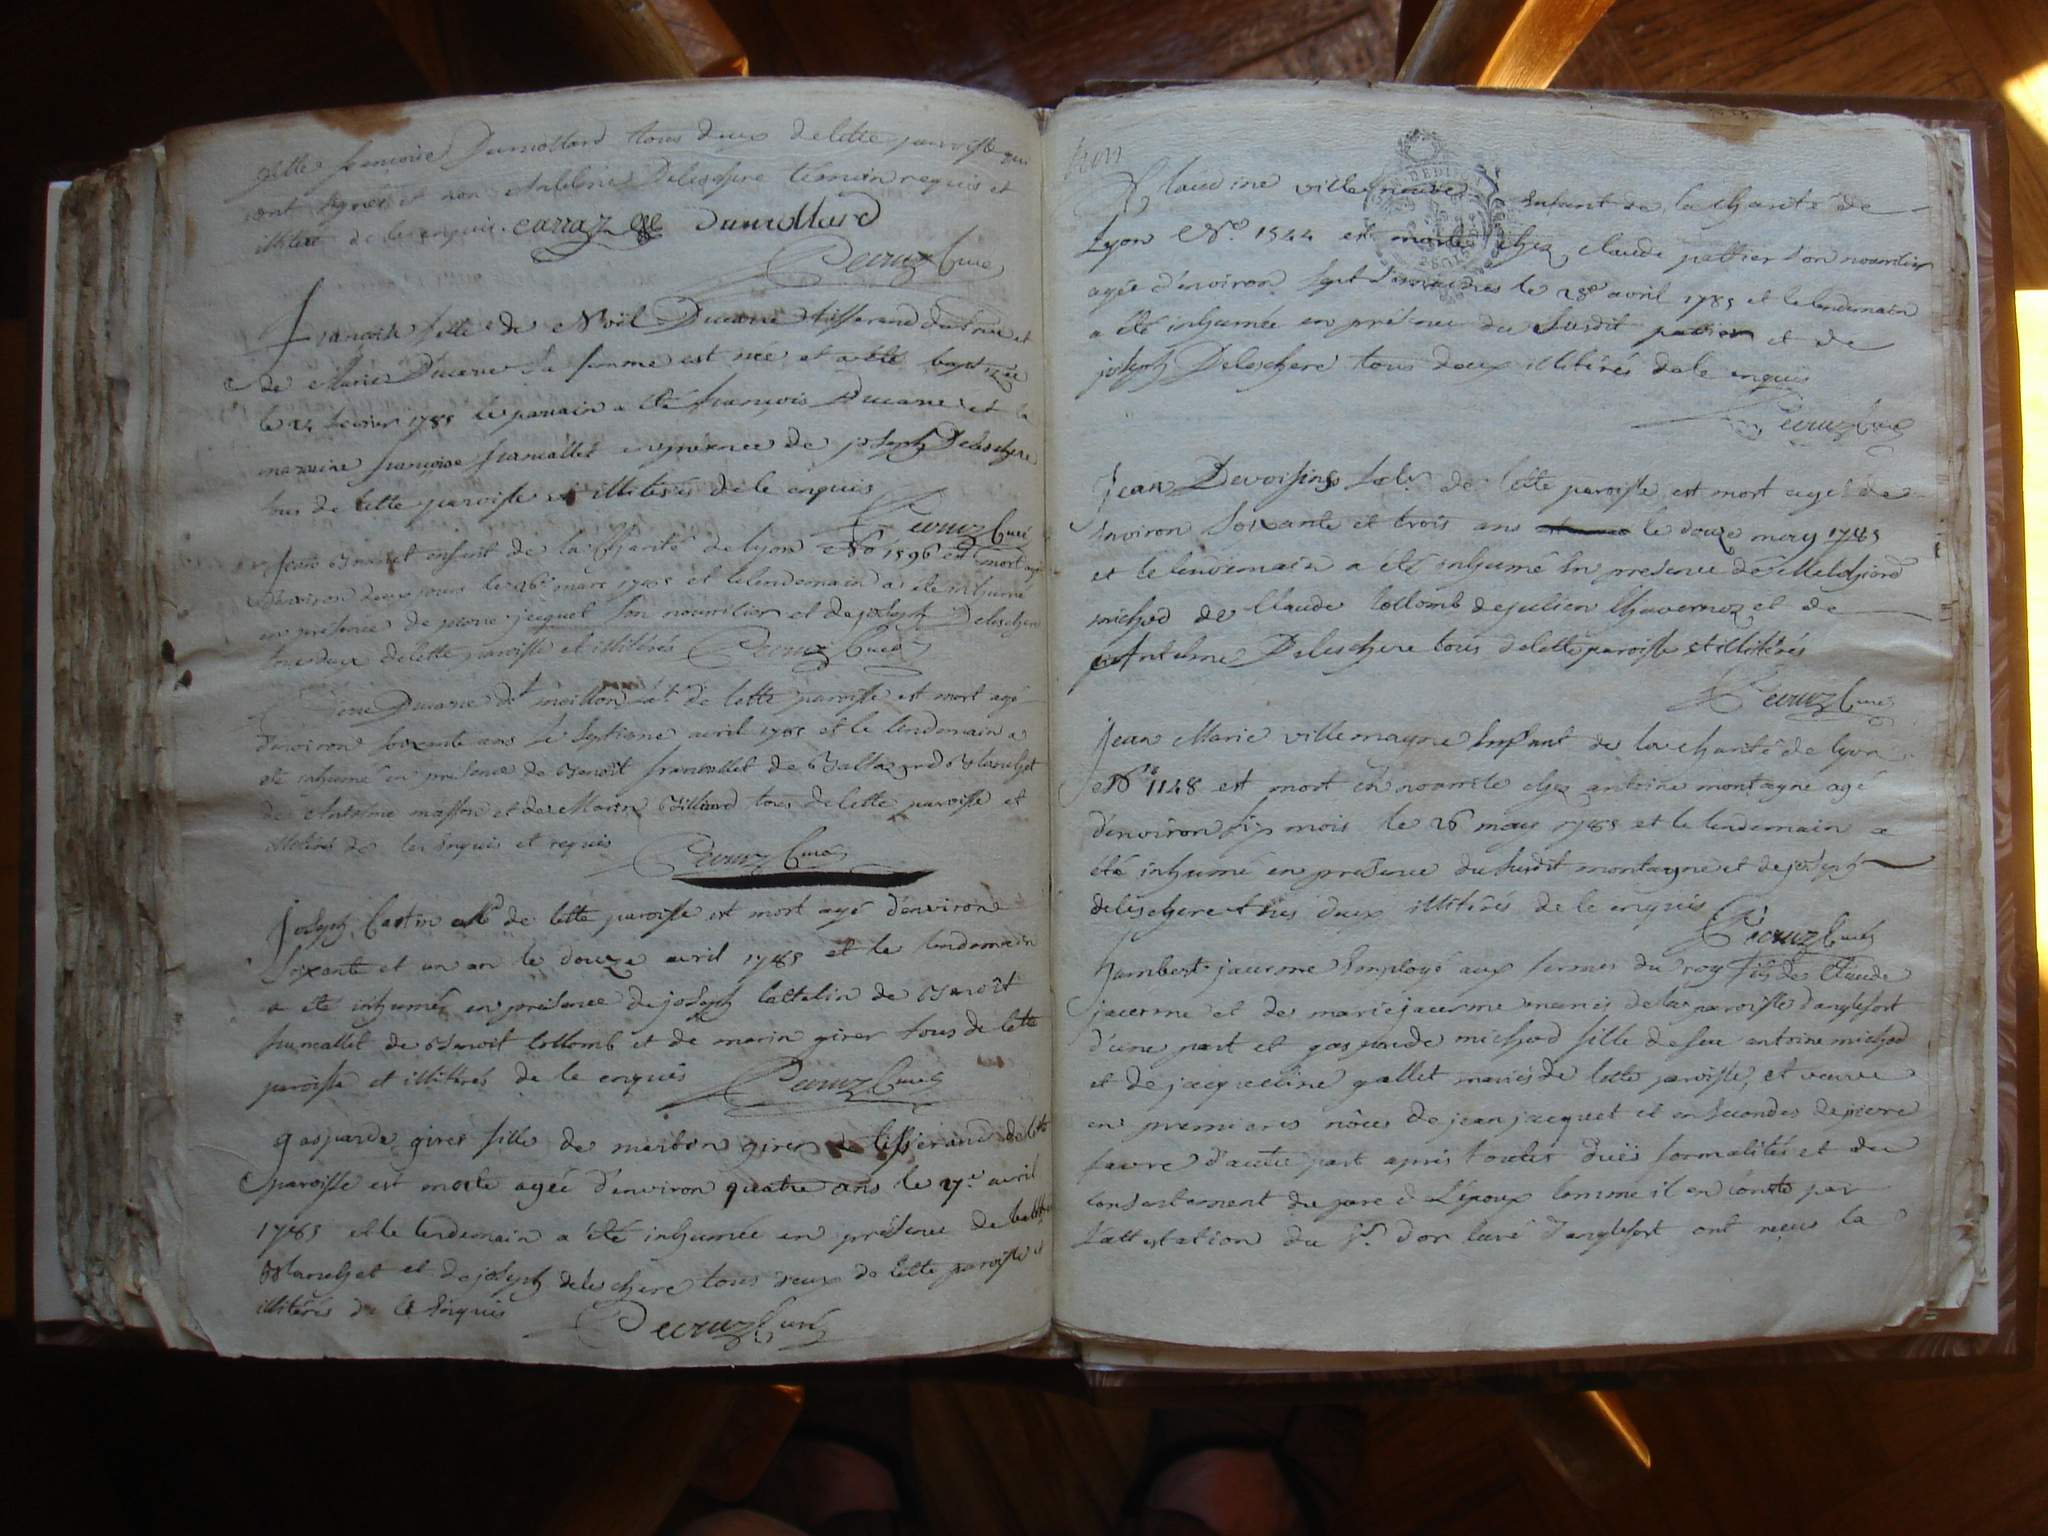 françoise Dumollard tous deux de cette parroisse qui
ont signés et non Antelme Deleschere temoin requis et
illitere de ce enquis. carraz Dumollard
Decruz Curé
françoise fille de Noël Ducarre tisserand du lieu et
de Marie Ducarre sa femme est née et a été baptizée
le 24 fevrier 1785 le parrain a été françois Ducarre et la
marraine françoise francallet en présence de joseph Deleschere
tous de cette paroisse et illiterés de ce enquis
Decruz Curé
Jean enfant de la Charité de lyon No 1596 est mort agé
d'environ deux jours le 26e mars 1785 et le lendemain a été inhumé
en présence de pierre jacquet son nourricier et de joseph Deleschere
tous deux de cette paroisse et illitérés Decruz Curé
Ducarre dt de cette paroisse est mort agé
d'environ soixante ans le septieme avril 1785 et le lendemain a
été inhumé en présence de Benoît francallet de Baltazard Blanchet
de Antelme masson et de Marin Billiard tous de cette paroisse et
illitérés de ce enquis et requis Decruz Curé
joseph Castin de cette paroisse est mort agé d'environ
soixante et un an le douze avril 1785 et le lendemain
a été inhumé en présence de joseph Castin de Benoît
francallet de Benoit Collomb et de marin girer tous de cette
paroisse et illitérés de ce enquis Decruz Curé
gasparde girer fille de girer tisserand de cette
paroisse est morte agée d'environ quatre ans le 27e avril
1785 et le lendemain a été inhumée en présence de
Blanchet et de joseph deleschere tous deux de cette paroisse et
illitérés de ce enquis Decruz Curé
Claudine villeneuve Enfant de la charité de
Lyon No. 1544 est morte chez claude pattier son nourricier
agée d'environ sept semaines le 28e avril 1785 et le lendemain
a été inhumée en présence du susdit pattier et de
joseph Deleschere tous deux illitérés de ce enquis
Decruz Curé
Jean Devoisins de cette paroisse est mort agé de
environ soixante et trois ans le douze may 1785
et le lendemain a été inhumé en presence de
michod de Claude Collomb de julien Chavernoz et de
Antelme Deleschere tous de cette paroisse et illitérés
Decruz Curé
Jean Marie villemagne Enfant de la charité de lyon
No 1148 est mort en nourrice chez antoine montagne agé
d'environ six mois le 26 may 1785 et le lendemain a
été inhumé en présence du susdit montagne et de joseph
deleschere tous deux illitérés de ce enquis
Decruz Curé
humbert jacerme Employé aux fermes du roy fils de Claude
jacerme et de marie jacerme mariés de la paroisse d'anglefort
d'une part et gasparde michod fille de feu antoine michod
et de jacqueline gallet mariés de cette paroisse, et veuve
en premieres nôces de jean jacquet et en secondes de pierre
favre d'autre part après toutes duës formalités et du
consentement du pere de L'epoux comme il en conste par
l'attestation du Sr. d'or curé d'anglefort ont reçus la